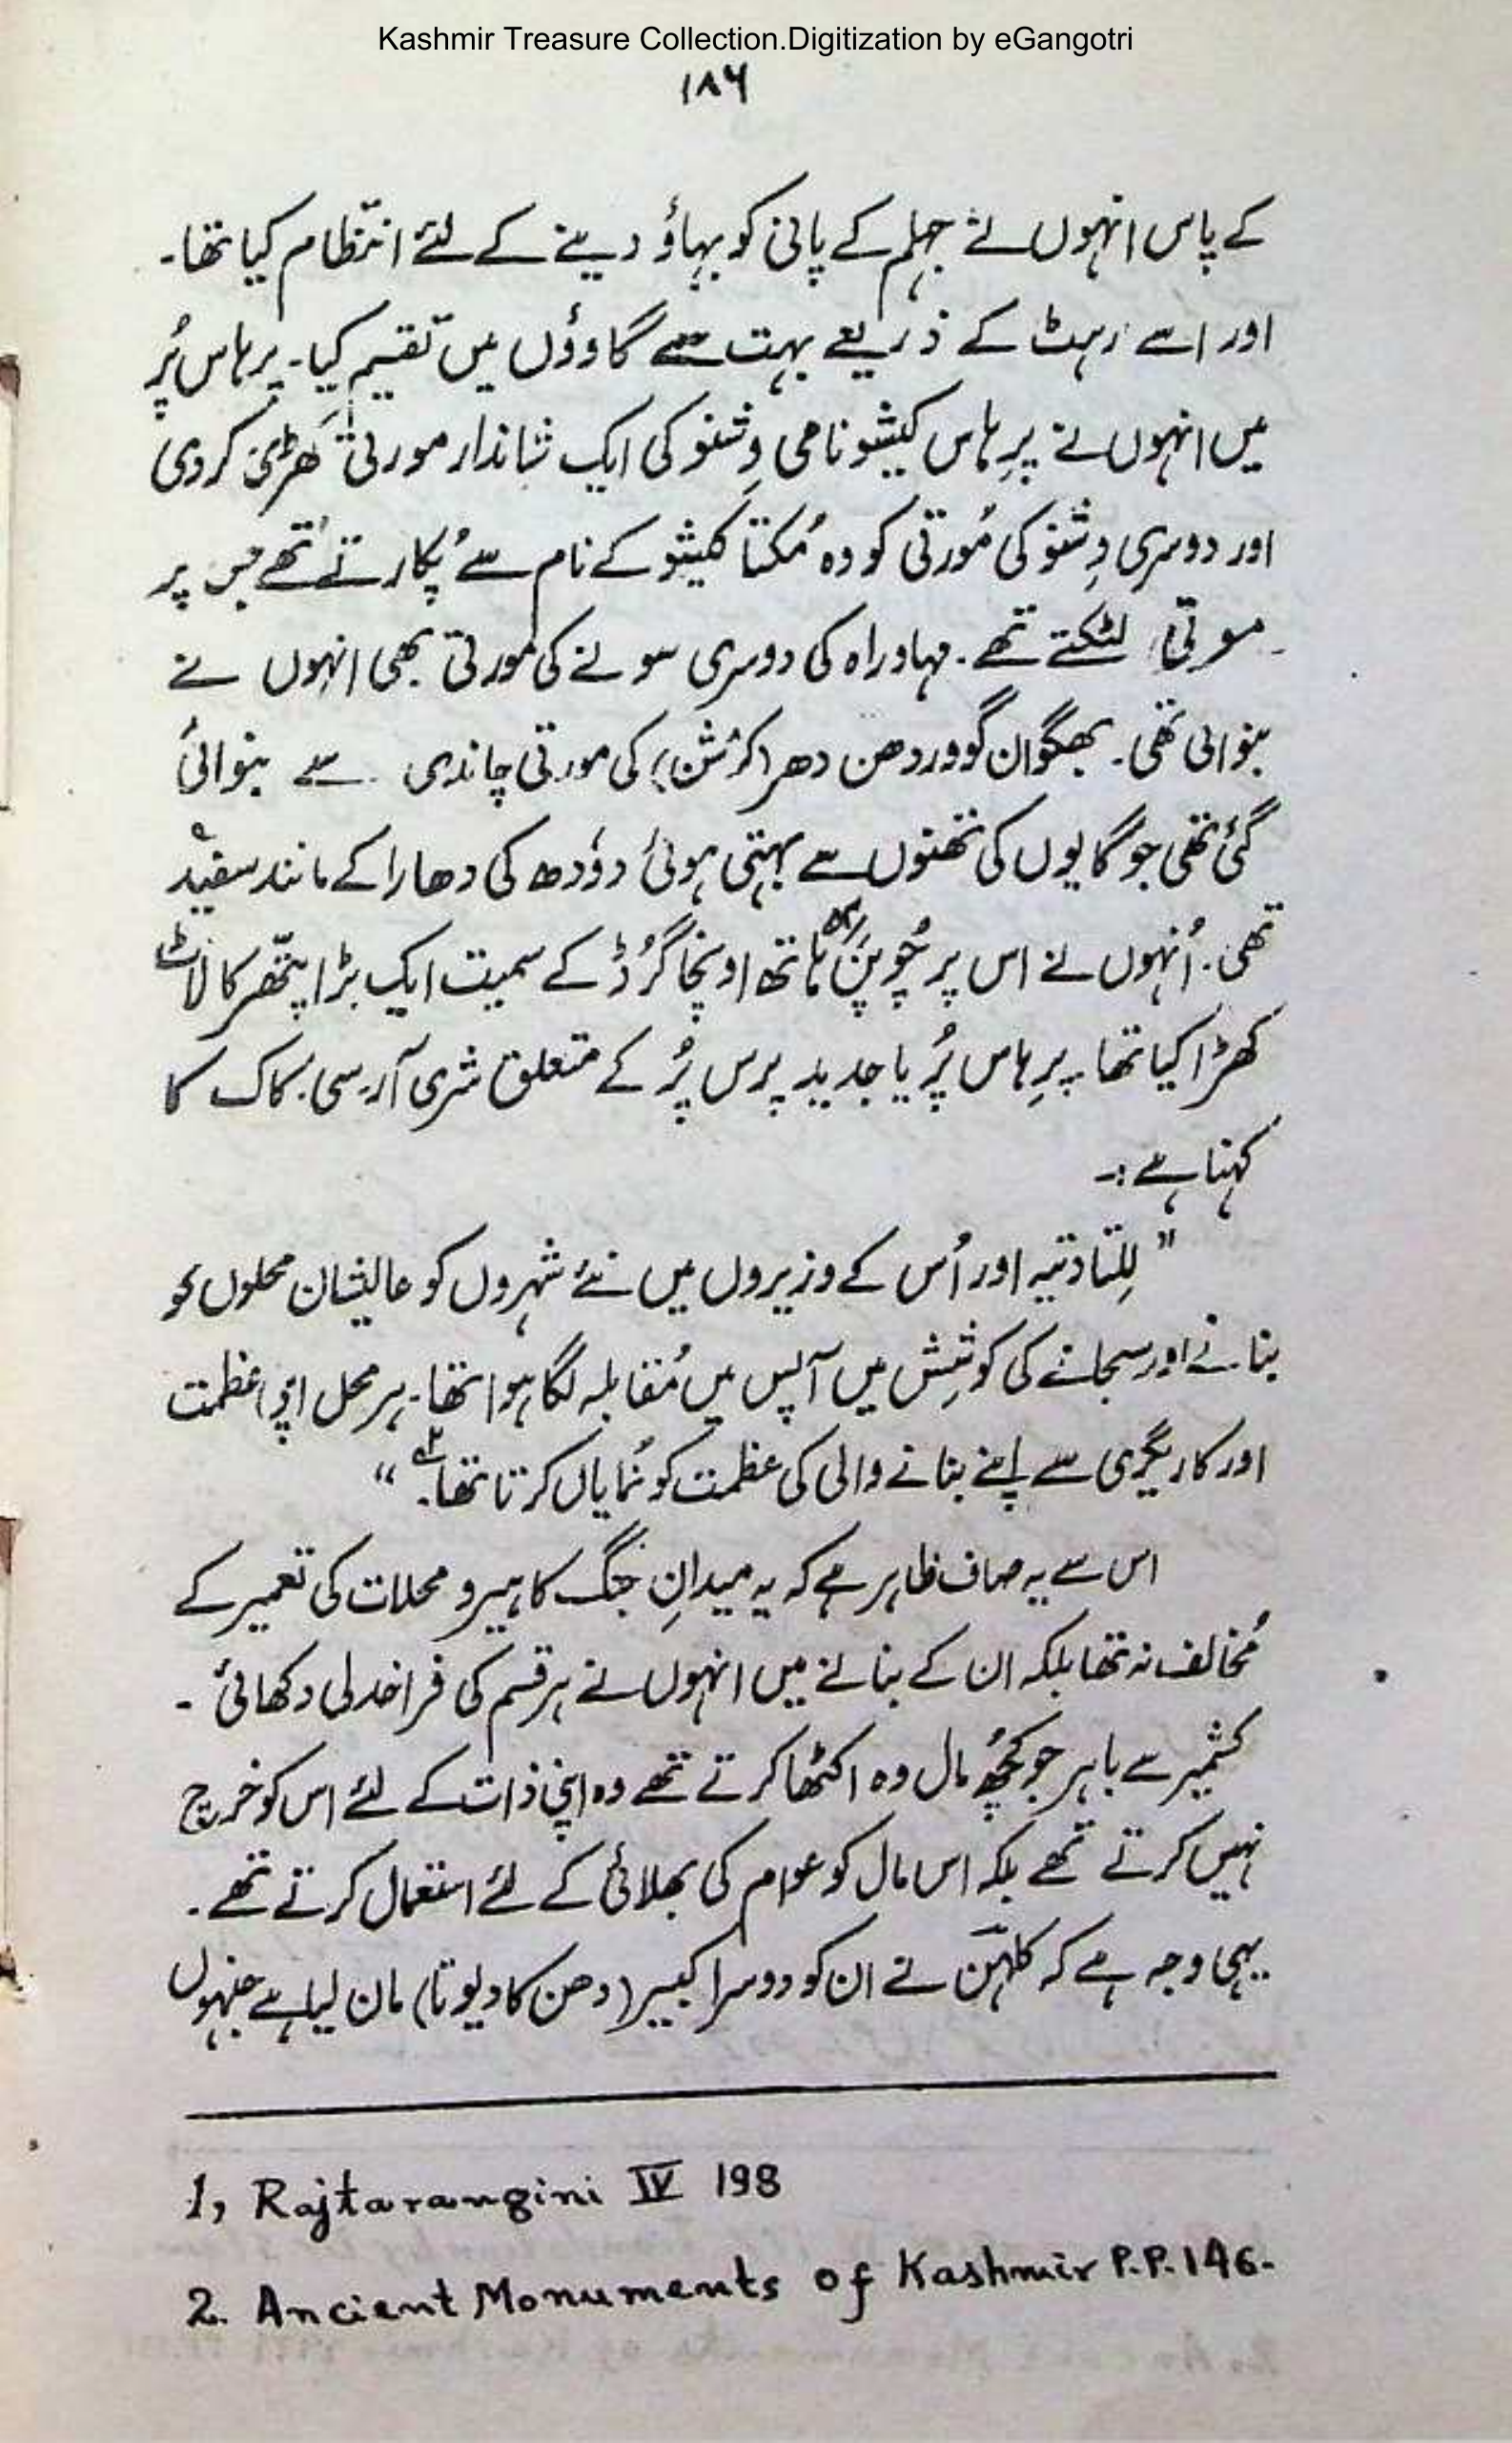 Kashmir Treasure Collection.Digitization by eGangotri
۱۸۶
کے پاس انہوں نے جہلم کے پانی کو بہاؤ دینے کے لئے انتظام کیا تھا۔
اور اسے رہٹ کے ذریعے بہت سے گاوؤں میں تقسیم کیا۔ پرہاس پُر
میں انہوں نے پرِہاس کیشو نامی وِشنو کی ایک شاندار مورتی کھڑی کر دی
اور دوسری وِشنو کی مُورتی کو وہ مُکتا کیشو کے نام سے پُکارتے تھے جس پر
موتی لٹکتے تھے۔ مہاوراہ کی دوسری سونے کی مورتی بھی انہوں نے
بنوائی تھی۔ بھگوان گووردھن دھر (کرشن) کی مورتی چاندی سے بنوائی
گئی تھی جو گایوں کی تھنوں سے بہتی ہوئی دوُدھ کی دھارا کے مانند سفید
تھی۔ اُنہوں نے اس پر چُوپن ہاتھ اونچا گرُڈ کے سمیت ایک بڑا پتھر کا لاٹ
کھڑا کیا تھا۔ پرِہاس پُر یا جدید پرس پُر کے متعلق شری آر۔سی۔ کاک کا
کہنا ہے :۔
" للِتادتیہ اور اُس کے وزیروں میں نئے شہروں کو عالیشان محلوں کو
بنانے اور سجانے کی کوشِش میں آپس میں مُقابلہ لگا ہوا تھا۔ ہر محل اپنی عظمت
اور کاریگری سے اپنے بنانے والی کی عظمت کو نُمایاں کرتا تھا۔۲ "
اس سے یہ صاف ظاہر ہے کہ یہ میدانِ جنگ کا ہیرو محلات کی تعمیر کے
مُخالف نہ تھا بلکہ ان کے بنانے میں انہوں نے ہر قسم کی فراخدلی دکھائی ۔
کشمیر سے باہر جو کچُھ مال وہ اکٹھا کرتے تھے وہ اپنی ذات کے لئے اس کو خرچ
نہیں کرتے تھے بلکہ اس مال کو عوام کی بھلائی کے لئے استعمال کرتے تھے ۔
یہی وجہ ہے کہ کلہن نے ان کو دوسرا کبیر (دھن کا دیوتا) مان لیا ہے جنہوں
1, Rajtarangini IV 198
2. Ancient Monuments of Kashmir P.P. 146-